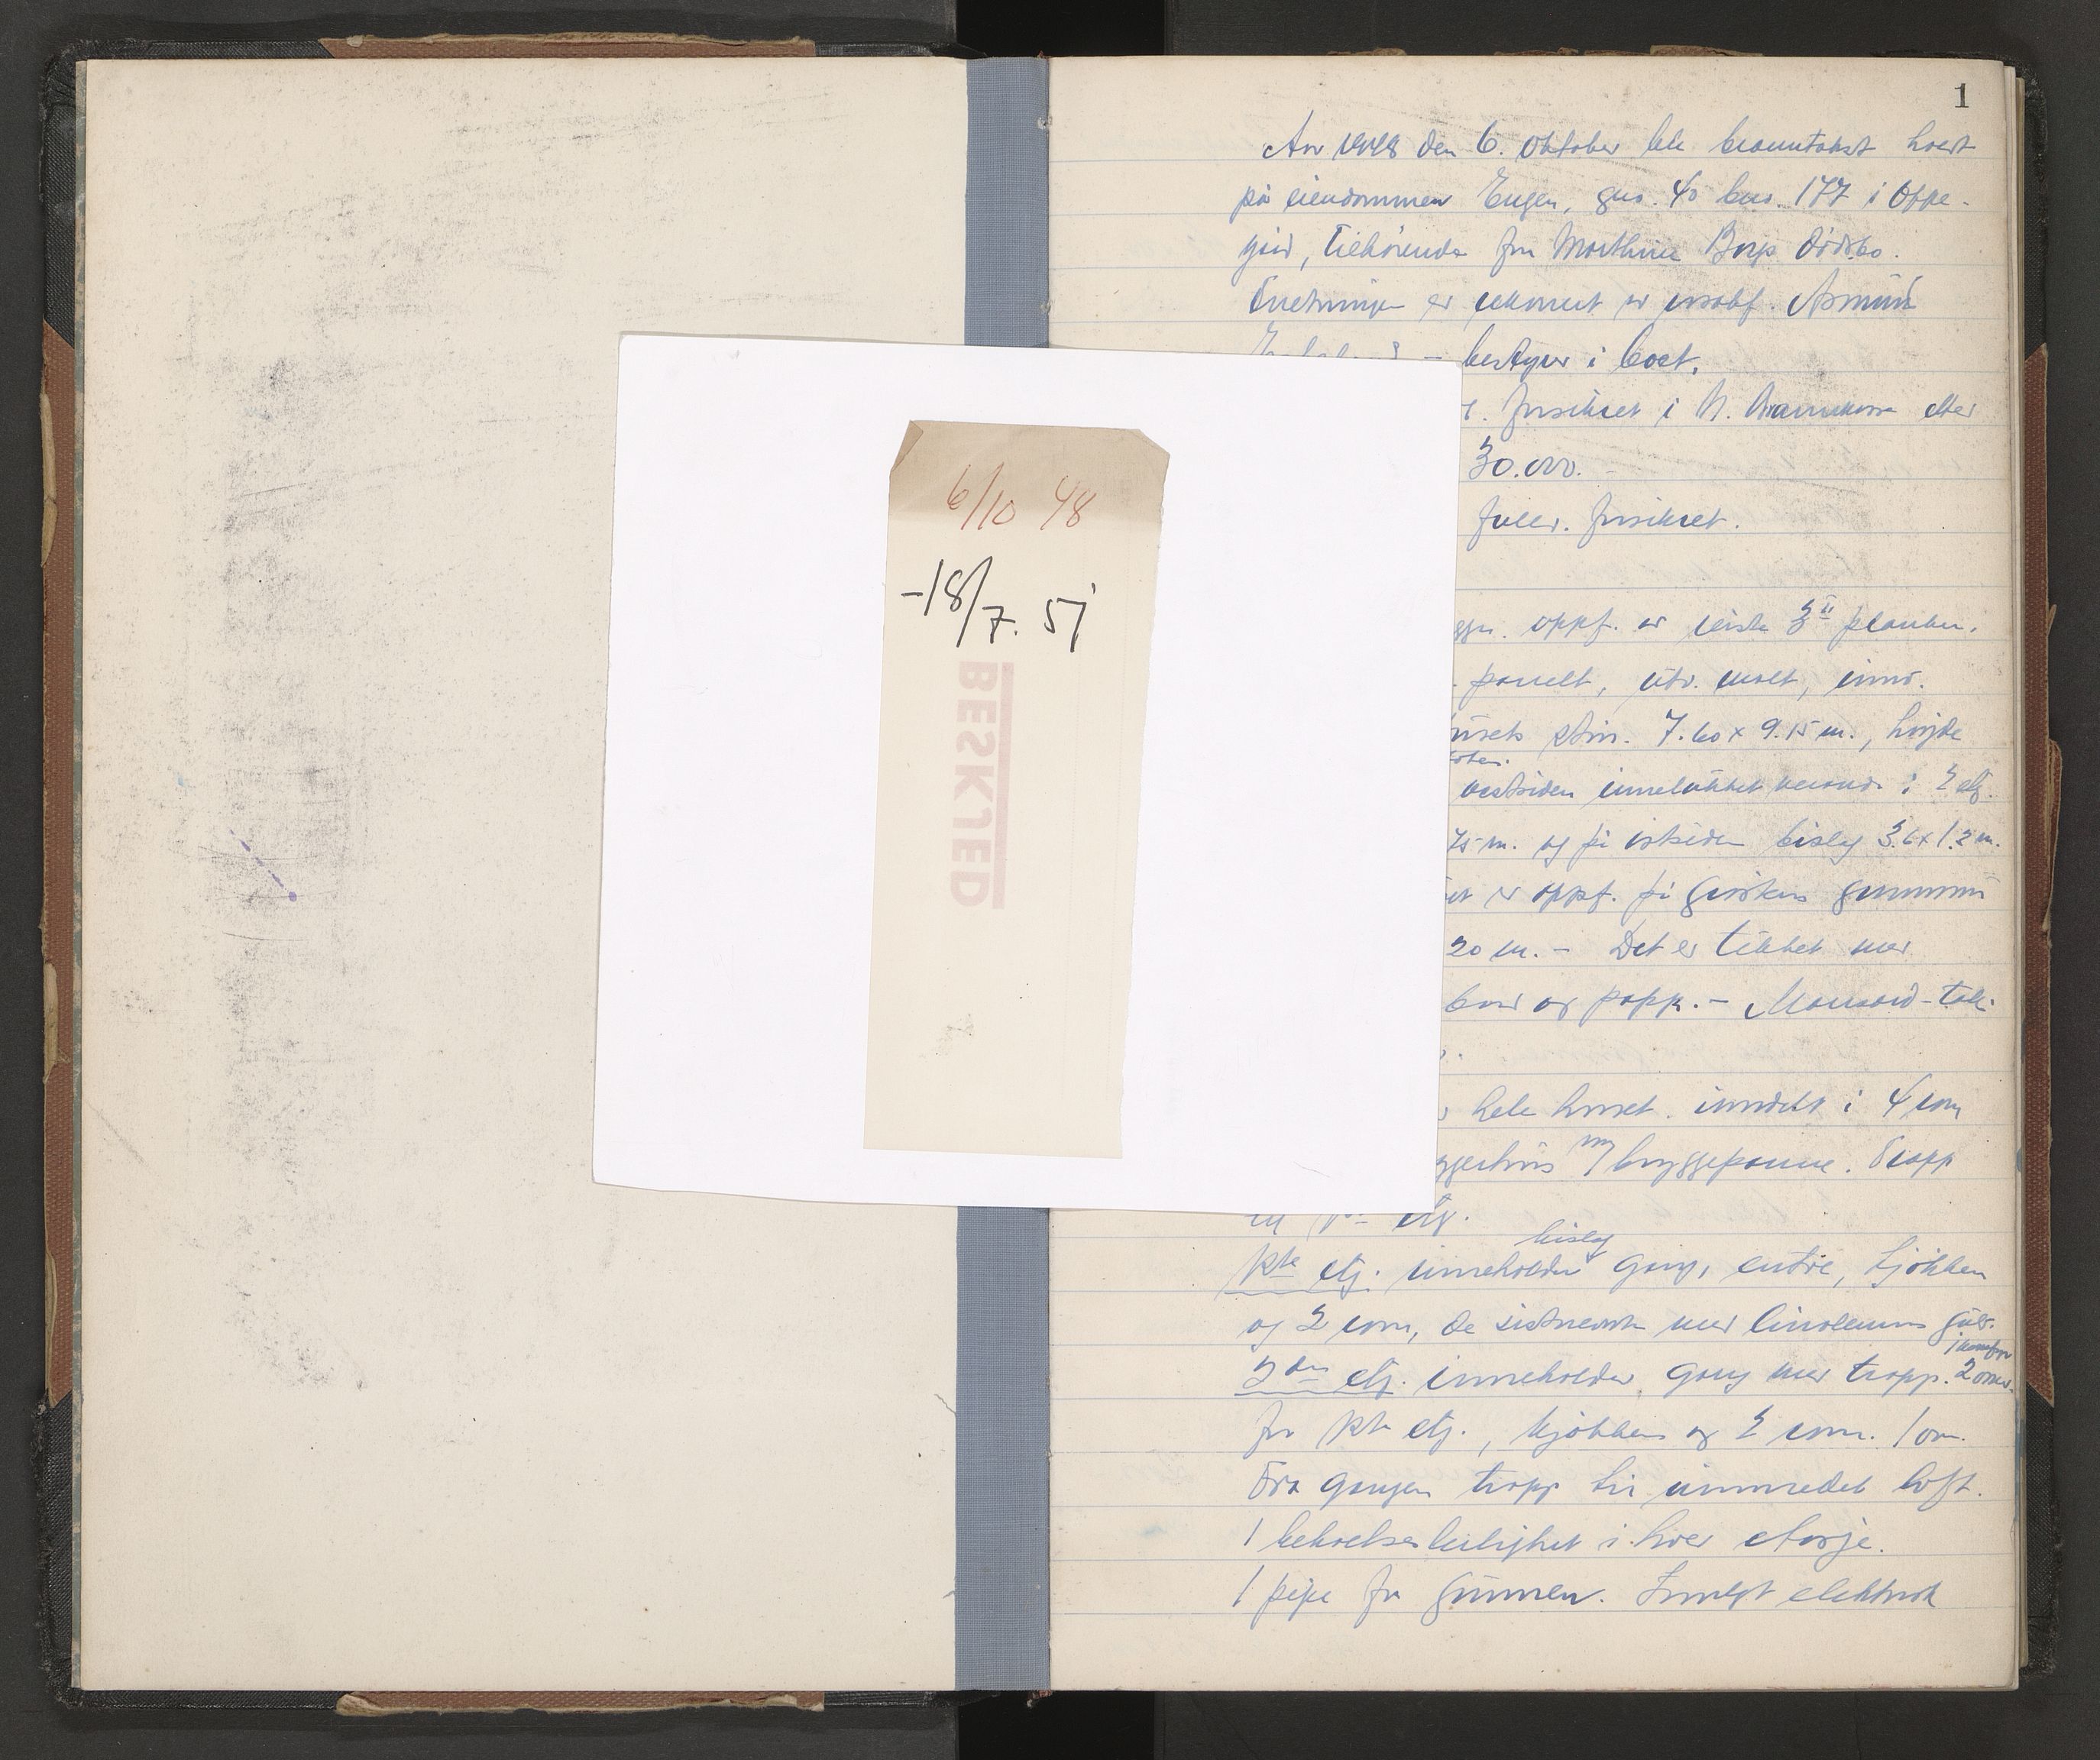 6/10 48
-18/7. 51
BESKJED
1
År 1948 den 6. oktober ble branntakst holdt
på eiendommen Engen, gnr. 40 bnr. 177 i Oppe-
gård, tilhørende fru Marthine Borp dødsbo.
Forretningen er rekvirert av ovrsakf. Asmund
- bestyrer i boet.
forsikret i N. Brannkasse etter
30.000.-
forsikret.
oppf. av 3" planker.
panelt, utv. malt, innv.
husets størr. 7.60 x 9.15 m., høyde
vestsiden innelukket veranda i 2 etg.
75 m. og på østsiden bislag 3.6 x 1.2 m.
er oppf. på gråstens grunnmur
20 m. - Det er tekket med
bord og papp. - Mansard-tak.
hele huset. inndelt i 4 rom
bryggerhus m/ bryggepanne. Trapp
til 1ste etg.
bislag
1ste etg. inneholder gang, entre, kjøkken
og 2 rom, de sistnevnte med linoleums gulv.
2den etg. inneholder gang med trapp. 2 ovner.
fra 1ste etg., kjøkken og 2 rom. 1 ovn.
Fra gangen trapp til uinnredet loft.
1 beboelsesleilighet i hver etasje.
1 pipe fra grunnen. Innlagt elektrisk